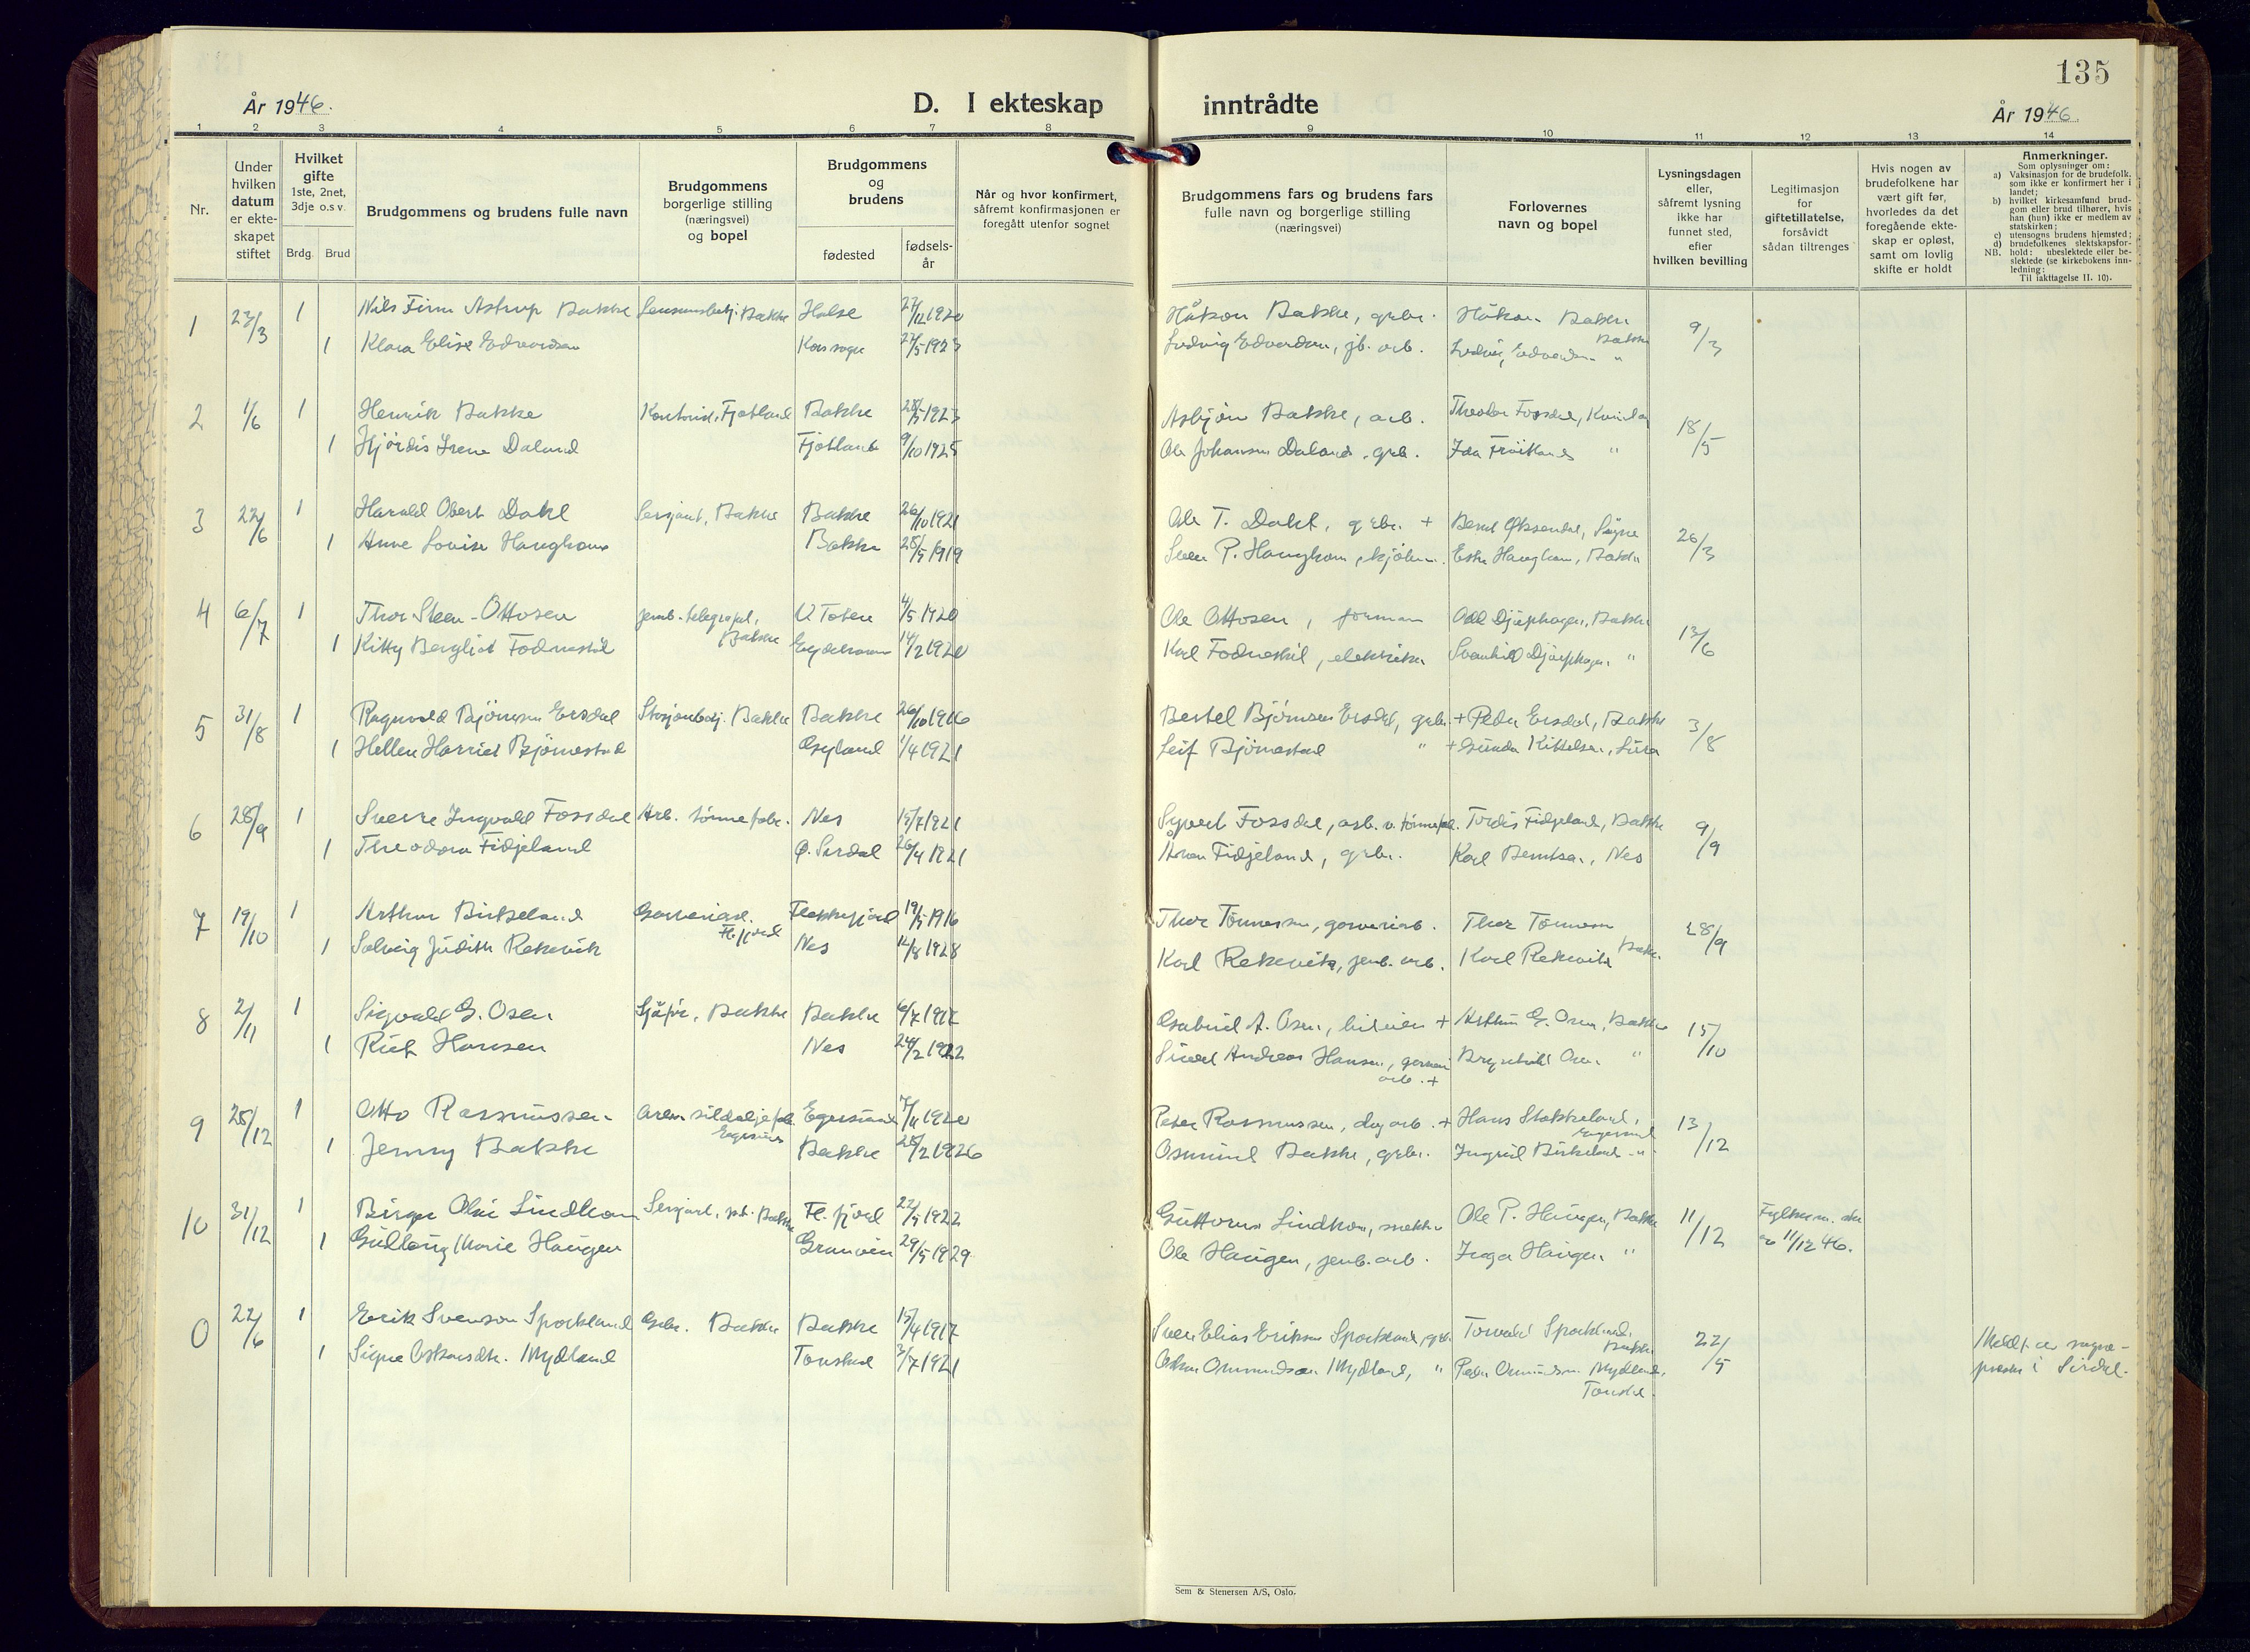 135
År 1946.
D. I ekteskap inntrådte
År 1946.
1 2 3 4 5 6 7 8 9 10 11 12 13 14
Nr.
Under
hvilken
datum
er ekte-
skapet
stiftet
Hvilket
gifte
1ste, 2net,
3dje o.s v.
Brdg.
Brud
Brudgommens og brudens fulle navn
Brudgommens
borgerlige stilling
(næringsvei)
og bopel
Brudgommens
og
brudens
fødested
fødsels-
år
Når og hvor konfirmert,
såfremt konfirmasjonen er
foregått utenfor sognet
Brudgommens fars og brudens fars
fulle navn og borgerlige stilling
(næringsvei)
Forlovernes
navn og bopel
Lysningsdagen
eller,
såfremt lysning
ikke har
funnet sted,
efter
hvilken bevilling
Legitimasjon
for
giftetillatelse,
forsåvidt
sådan tiltrenges
Hvis nogen av
brudefolkene har
vært gift før,
hvorledes da det
foregående ekte-
skap er opløst,
samt om lovlig
skifte er holdt
Anmerkninger.
Som oplysninger om:
a) Vaksinasjon for de brudefolk,
som ikke er konfirmert her i
landet;
b) hvilket kirkesamfund brud-
gom eller brud tilhører, hvis
han (hun) ikke er medlem av
statskirken;
c) utensogns brudens hjemsted;
d) brudefolkenes slektskapsfor-
hold: ubeslektede eller be-
slektede (se kirkebokens inn-
ledning;
NB.
Til iakttagelse II. 10).
1 23/3 1 Nils Finn Astrup Bakke Bakke Halse 27/12 1920 Håkon Bakke, grbr. Håkon Bakke Bakke 9/3
1 Klara Elise Edvardsen 27/5 1923 Ludvig Edvardsen, jb. arb. Ludvig Edvardsen "
2 1/6 1 Henrik Bakke Fjotland Bakke 28/5 1923 Asbjørn Bakke, arb. Theodor Fossdal, 18/5
1 Hjørdis Irene Daland Fjotland 9/10 1925 Ole Johansen Daland, grb. Ida "
3 22/6 1 Harald Obert Dahl Sersjant, Bakke Bakke 26/10 1921 Ole T. Dahl, grbr. + Bernt Øksendal, Søgne 26/3
1 Anne Lovise Haughom Bakke 28/5 1919 Sven P. Haughom, Haughom, Bakke
4 6/7 1 Thor Steen-Ottosen jernb. telegrafist, Bakke V. Toten 4/5 1920 Ole Ottosen, formann Odd Djuphagen, Bakke 13/6
1 Kitty Bergliot Fodnestøl 14/2 1920 Karl Fodnestøl, elektriker Svanhild Djuphagen "
5 31/8 1 Ragnvald Bjørnsen Ersdal Stasjonsbetj. Bakke Bakke 26/10 1916 Bertel Bjørnsen Ersdal, grbr. + Peder Ersdal, Bakke 3/8
1 Hellen Harriet Bjørnestad Gyland 1/4 1921 Leif Bjørnestad " + Gunda Kittelsen,
6 28/9 1 Sverre Ingvald Fossdal Arb. tønnefabr. Nes 15/7 1921 Syvert Fossdal, arb. v. tønnefabr. Tordis Fidjeland, Bakke 9/9
1 Theodora Fidjeland Ø. Sirdal 26/4 1921 Fidjeland, grbr. Karl Berntsen, Nes
7 19/10 1 Arthur Birkeland Garveriarb. Fl.fjord Flekkefjord 19/5 1916 Thor Tønnessen, garveriarb. Thor Tønnessen 28/9
1 Solveig Judith Rekevik Nes 12/8 1928 Karl Rekevik, jernb. arb. Karl Rekevik Bakke.
8 2/11 1 Sigvald G. Osen Sjåfør, Bakke Bakke 6/7 1912 Gabriel A. Osen, bileier + Arthur G. Osen, Bakke 15/10
1 Rut Hansen Nes 24/2 1922 Andreas Hansen, garveri arb. + Brynhild Osen "
9 28/12 1 Otto Rasmussen Arb. sildoljefabr. Egersund Egersund 7/11 1920 Peter Rasmussen, dagarb. + Hans Stokkeland, Egersund 13/12
1 Jenny Bakke Bakke 28/2 1926 Osmund Bakke, grbr. Ingrid Birkeland "
10 31/12 1 Birger Olai Lindhom Sersjant, Bakke Fl.fjord 22/9 1922 Guttorm Lindhom, snekker Ole P. Haugen, Bakke 11/12 11/12 46.
1 Gullaug Marie Haugen Granvin 29/5 1929 Ole Haugen, jernb. arb. Inga Haugen "
0 22/6 1 Erik Svenson Sporkland Grbr. Bakke Bakke 15/4 1917 Sven Elias Eriksen Sporkland, grbr. Torvald Sporkland, Bakke 22/5 Meldt av sogne-
1 Signe Oskarsdtr. Mydland Tonstad 3/7 1921 Oskar Ommundsen Mydland, " Peder Ommundsen Mydland, Tonstad. presten i Sirdal.
Sem & Stenersen A/S, Oslo.